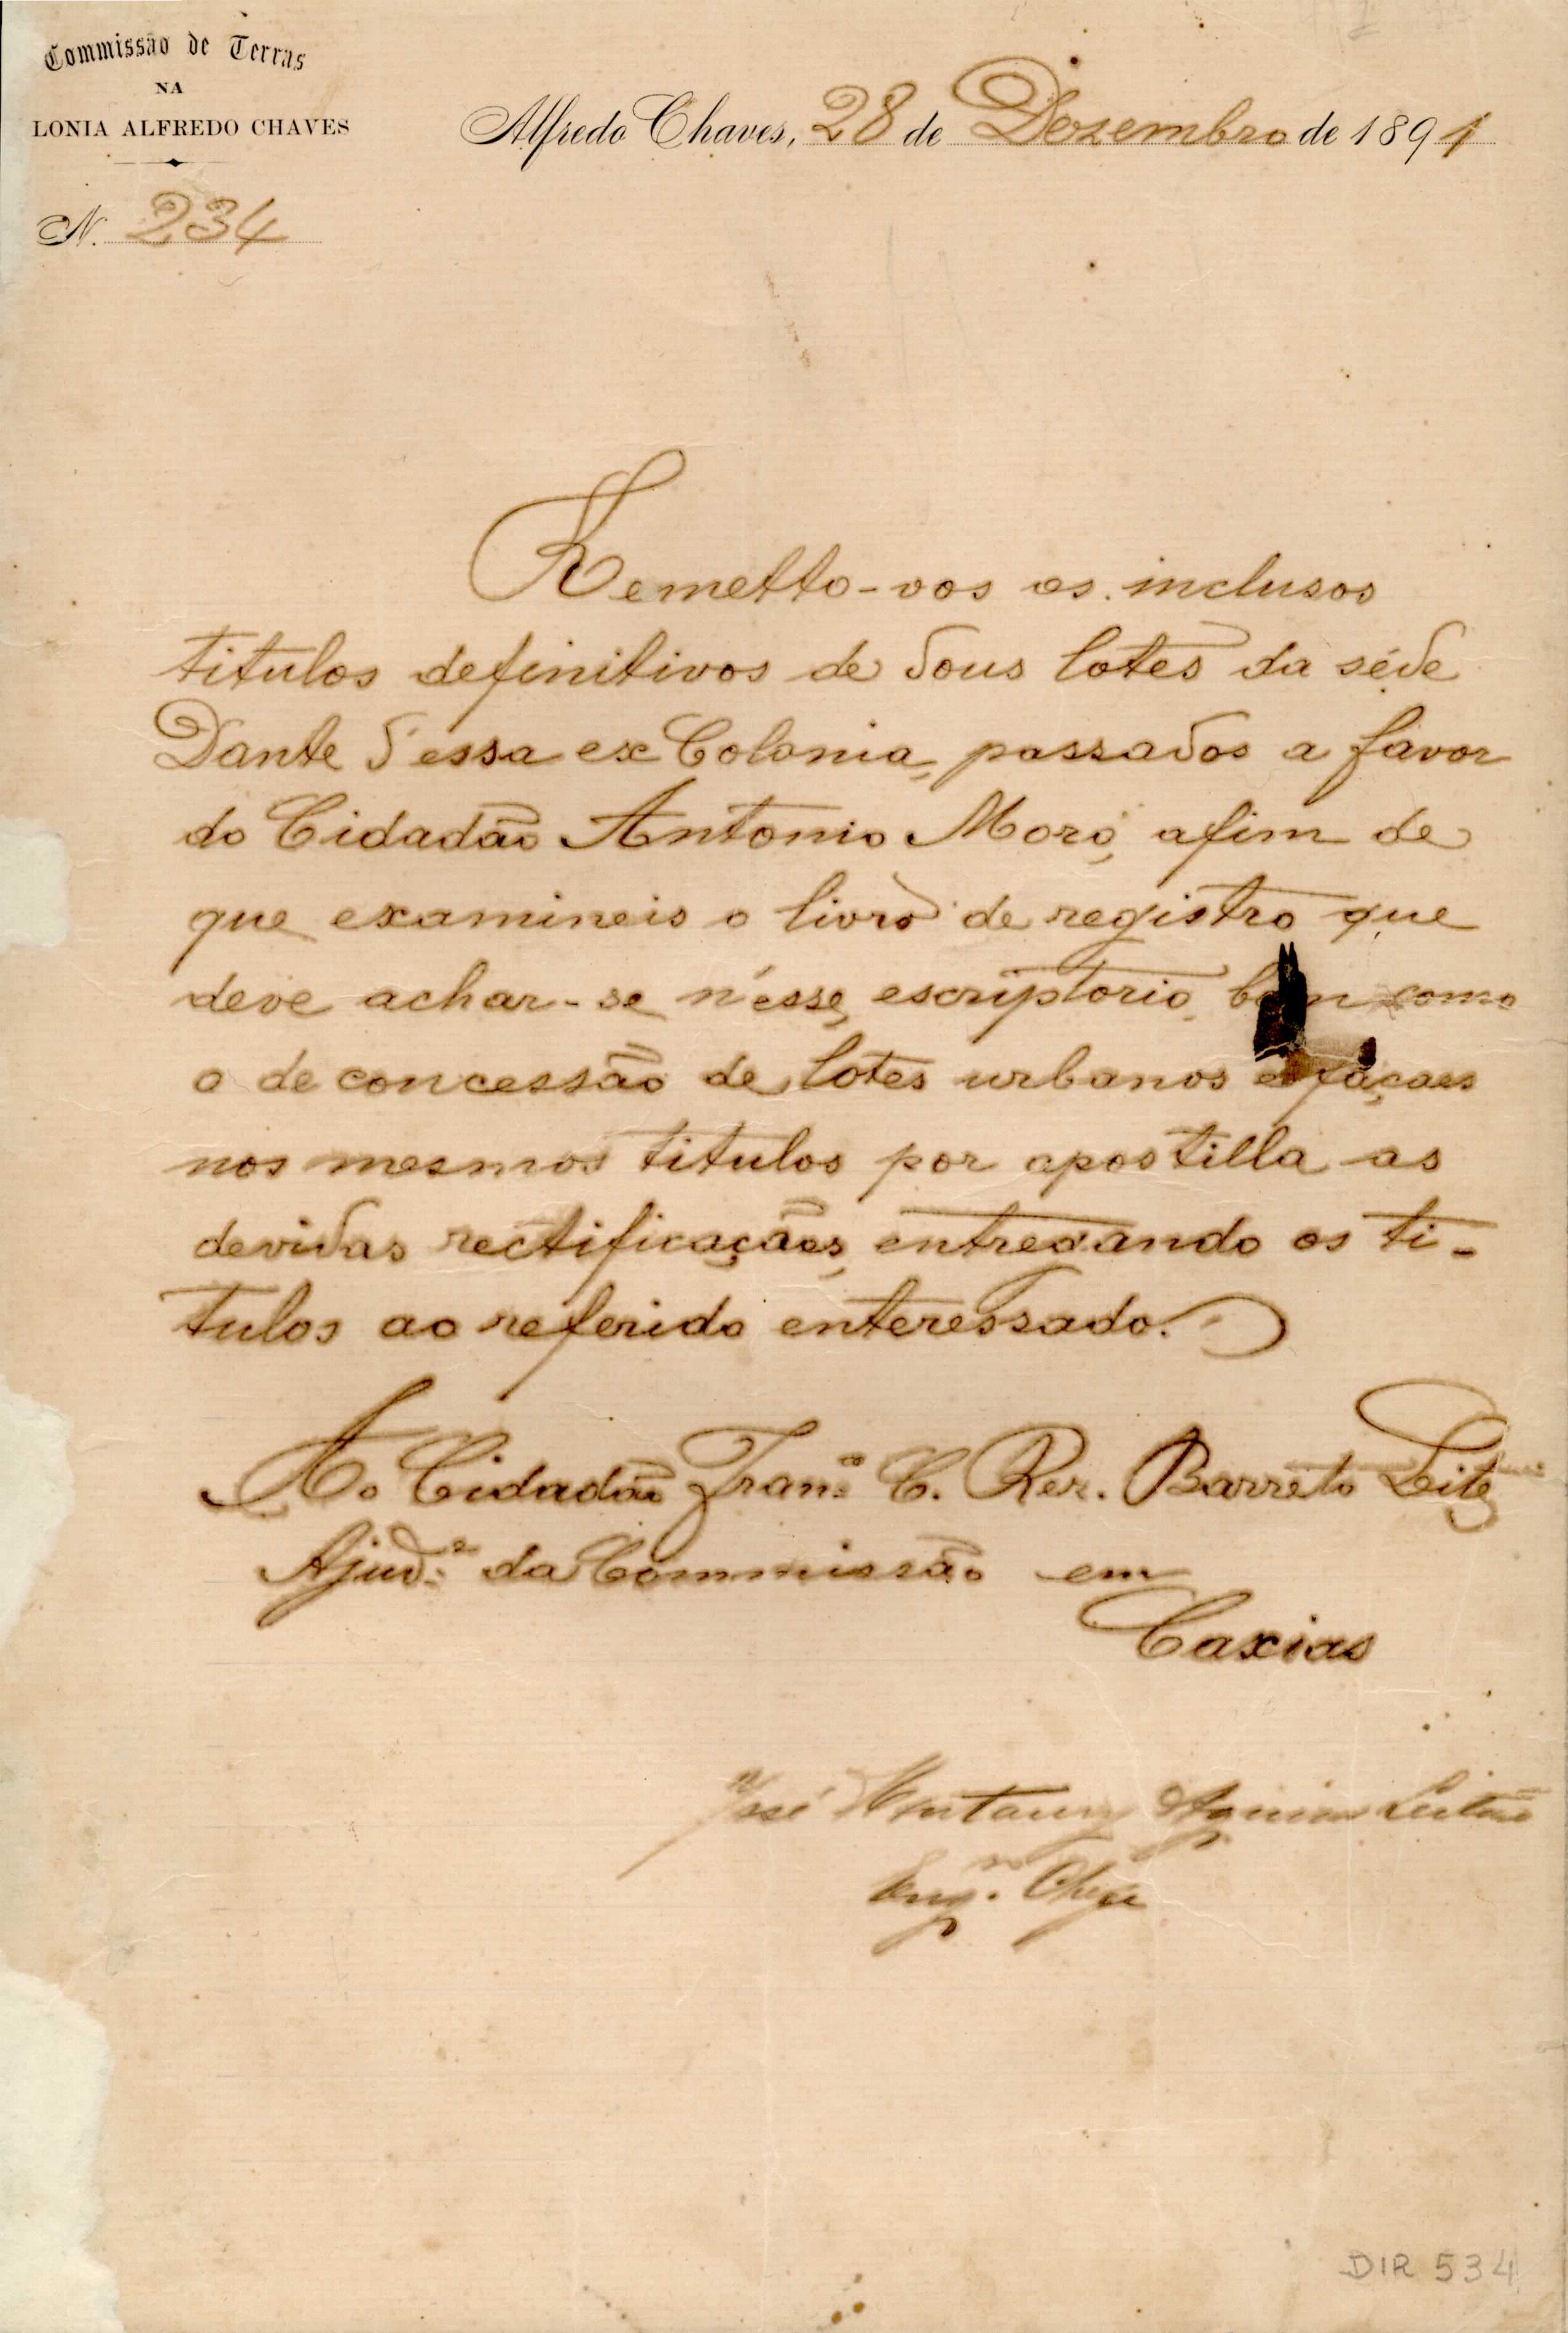 Commissão de Terras
NA
LONIA ALFREDO CHAVES
Alfredo Chaves, 28 de Dezembro de 1891
N. 234
Remetto-vos os inclusos
titulos definitivos de dous lotes da séde
Dante d'essa ex Colonia, passados a favor
do Cidadão Antonio Moro, afim de
que examineis o livro de registro que
deve achar-se n'esse escriptorio, bem como
o de concessão de lotes urbanos e façaes
nos mesmos titulos por apostilla as
devidas rectificações, entregando os ti-
tulos ao referido enteressado.
Ao Cidadão Franco C. Rer. Barreto Leite
Ajude da Commissão em
Caxias
José Montaury Aguiar Leitão
Engo Chefe
DIR 534